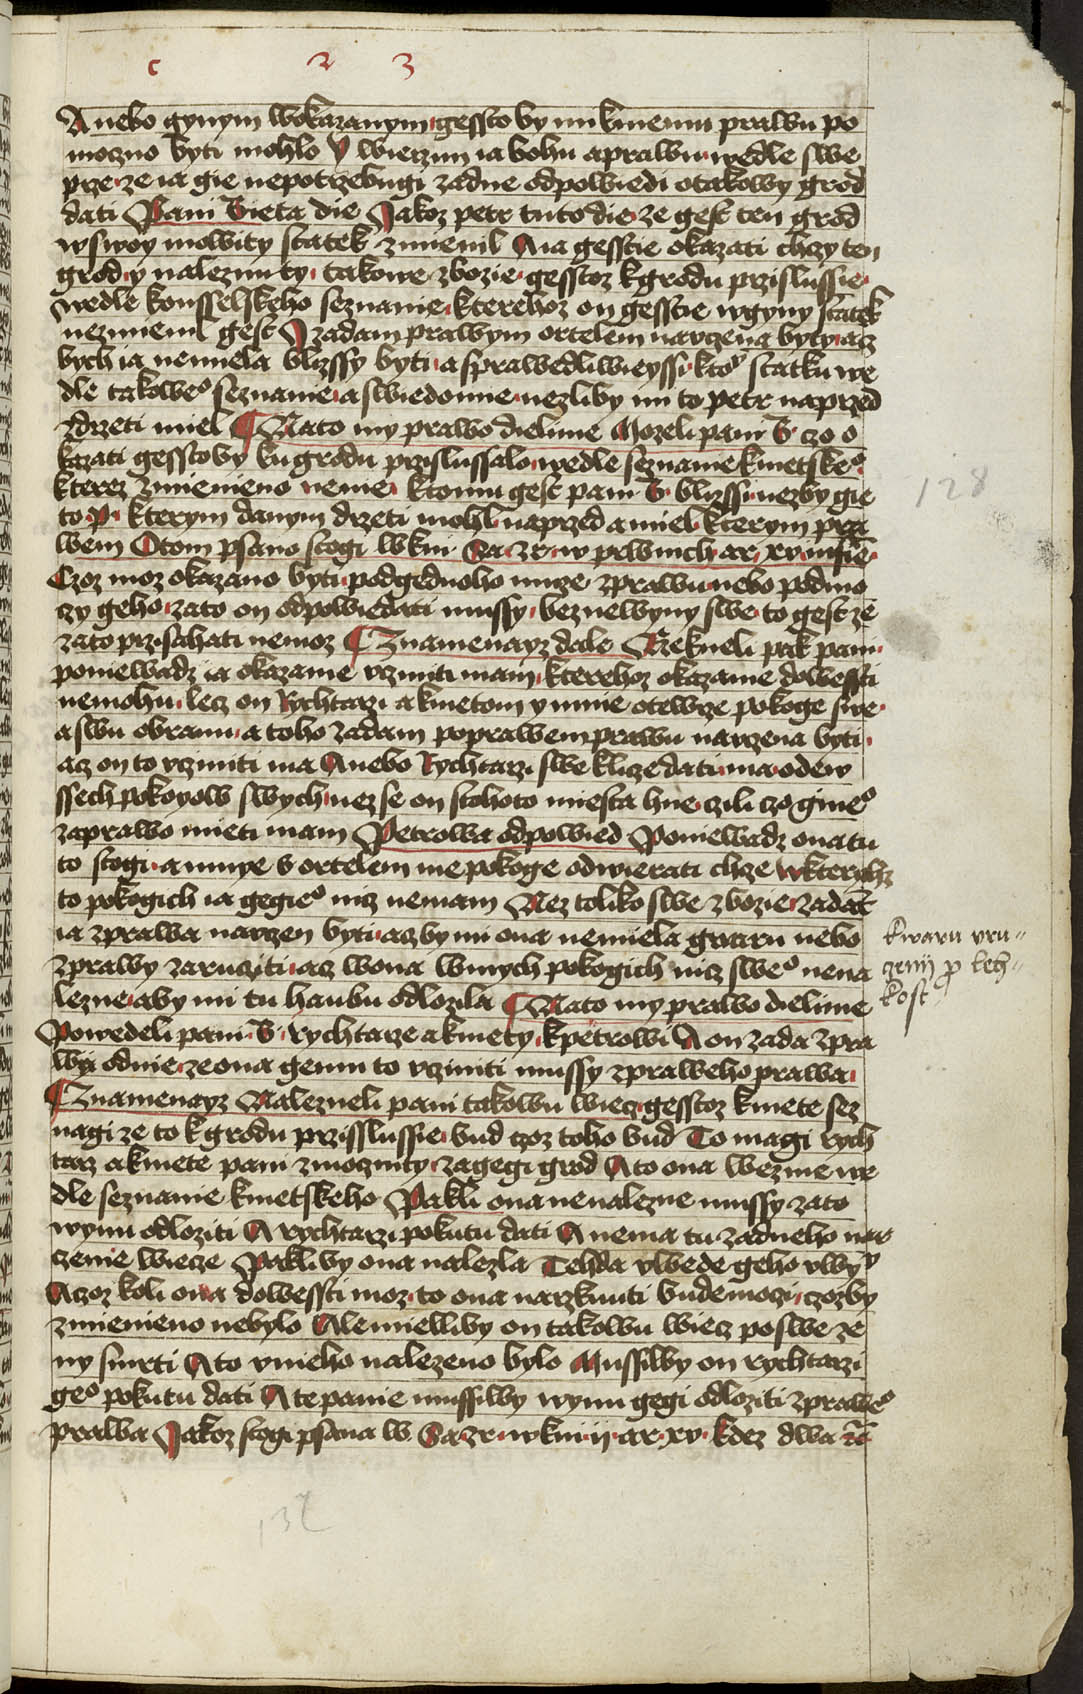 c 2 3
A nebo gynym wokazanym gessto by mi kmemu prawu po
mozno byti mohlo Y wierzim ia bohu aprawu wedle swe
prze ze ia gie nepotrzebugi zadne odpowiedi otakowy grod
dati Pani Bieta die Jakoz petr tuto die ze gest ten grod
wswoy mowity statek zmienil A ia gesstie okazati chzy ten
grod y nalezmity takowe zbozie gesstoz kgrodu przislussie
wedle konsselskeho seznanie kterehoz on gesstie wgyny statek
nezmienil gest J zadam prawym ortelem narzena byty acz
bych ia nemiela blizssy byti a sprawedliweyssi kto statku we
dle takoweo seznanie a swiedomie nezliby mi to petr naprzed
zdrzeti miel Nato my prawo dielime Mozeli pani B czo o
kazati gesstoby ku grodu przislussalo wedle seznanie kmetskeo
kterez zmienieno nenie ktomu gest pani B blizssi nezby gie
to P kterym danym drzeti mohl naprzed a miel kterym pra
wem Otom psano stogi wkni Sa ze w prwnich ar xv insie
Czoz moz okazano byti podgednoho muze zprawu nebo podmo
czy geho zato on odpowiedati mussy beznewyny swe to gest ze
zato prziisahati nemoz Znamenayz dale Rzekneli pak pani
poniewadz ia okazanie vcziniti mam kterehoz okazanie dowessti
nemohu lecz on Rychtarzi a kmetom y mnie otewrze pokoge swe
a swu obranu a toho zadam poprawem prawu narzena byti
acz on to vcziniti ma A nebo Rychtarzi swe klicze dati ma odew
ssech pokoyow swych nez se on stohoto miesta hne czili czo gineo
zaprawo mieti mam Petrowa odpowied Poniewadz ona tu
to stogi a mnye s ortelem me pokoge odwierati chze wkterychz
to pokogich ia gegieo nicz nemam Nez toliko swe zbozie zadam
ia zprawa narzen byti acz by mi ona nemiela gwaru nebo
zprawy zaruciti acz wona wmych pokogich nicz sweo nena
lezne aby mi tu hanbu odlozila Nato my prawo dielime
Powedeli pani B rychtarze a kmety kpetrowi A on zada zpra
wy odnie ze ona gemu to vcziniti mussy zpraweho prawa
Znamenayz Nalezneli pani takowu wiecz gesstoz kmete sez
nagi ze to kgrodu przisslussie bud czoz toho bud To magi rych
tarz a kmete pani zmocznity zagegi grod A to ona wezme we
dle seznanie kmetskeho Pakli ona nenalezne mussy zato
wynu odloziti A rychtarzi pokutu dati A nema tu zadneho nar
czenie wiecze Pakliby ona nalezla Tehda vwede geho vwy
A czoz koli ona dowessti moz to ona narzknuti bude mozi czozby
zmienieno nebylo Ale mielliby on takowu wiecz poswe ze
ny smrti A to vnieho nalezeno bylo Mussilby on rychtarzi
geo pokutu dati A te panie mussilby wynu gegi odloziti zpraweo
prawa Jakoz stogi psana w Sa ze wkni ii ar xv kdez dwa
128
kwaru vru-
czenij p leh-
kost
132